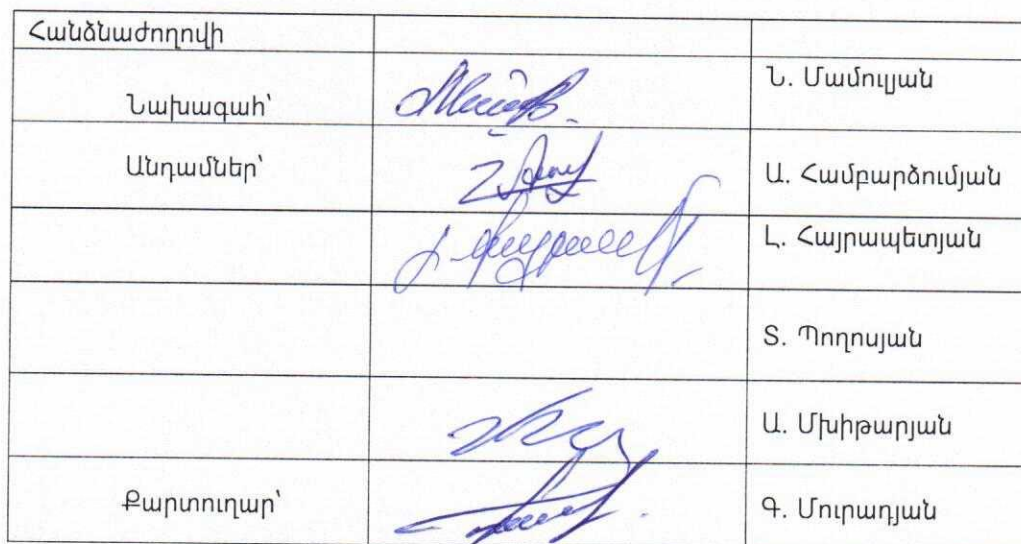 Հանձնաժողովի
Նախագահ՝
Ն. Մամուլյան
Անդամներ՝
Ա. Համբարձումյան
Լ. Հայրապետյան
Տ. Պողոսյան
Ա. Մխիթարյան
Քարտուղար՝
Գ. Մուրադյան